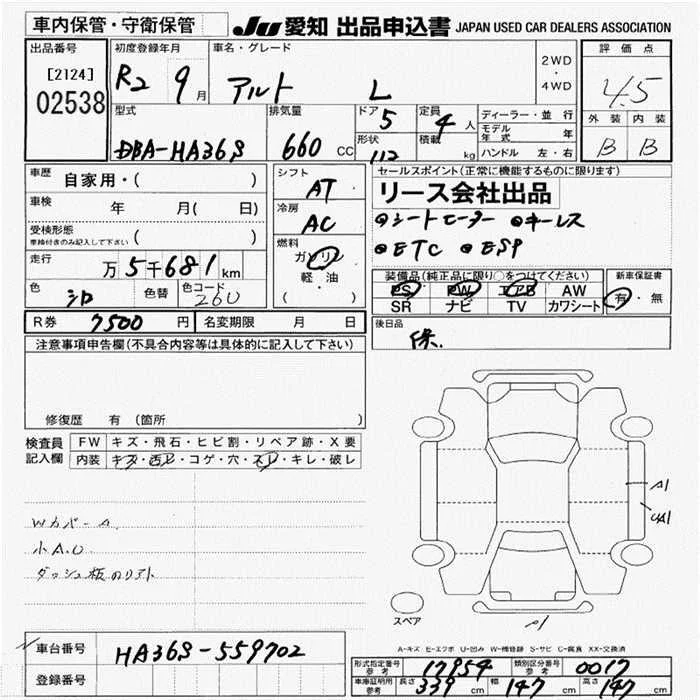 車内保管・守衛保管
JU 愛知 出品申込書 JAPAN USED CAR DEALERS ASSOCIATION
出品番号
[2124]
02538
初度登録年月
R2 9月
車名・グレード
アルト L
2WD
・
4WD
評価点
4.5
外装 内装
B B
型式
DBA-HA36S
排気量
660 CC
ドア
5
形状
定員
4人
積載
kg
ディーラー・並行
モデル年式 年
ハンドル 左・右
車歴 自家用・( )
車検 年 月( 日)
受検形態
車検付きのみ記入して下さい ( )
走行 万5千681km
色 シロ 色替 色コード 26U
シフト
AT
冷房
AC
燃料
ガソリン
軽・油
( )
セールスポイント(正常に機能するものに限ります)
リース会社出品
◎シートヒーター ◎キーレス
◎ETC ◎ESP
装備品(純正品に限り○をつけてください)
PS PW エアB AW
SR ナビ TV カワシート
新車保証書
有・無
R券 7500円 名変期限 月 日
後日品
保.
注意事項申告欄(不具合内容等は具体的に記入して下さい)
修復歴 有 (箇所 )
検査員記入欄
FW キズ・飛石・ヒビ割・リペア跡・X要
内装 キズ・凹レ・コゲ・穴・スレ・キレ・破レ
Wカバー A
小A.U
ダッシュ板のリアト
A1
UA1
A1
スペア
A-キズ E-エクボ U-凹み W-補修跡 S-サビ C-腐食 XX-交換済
車台番号 HA36S-559702
登録番号
形式指定番号 参考 17954 類別区分番号 参考 0017
車庫証明用 参考 長さ 339 cm 幅 147 cm 高さ 147 cm